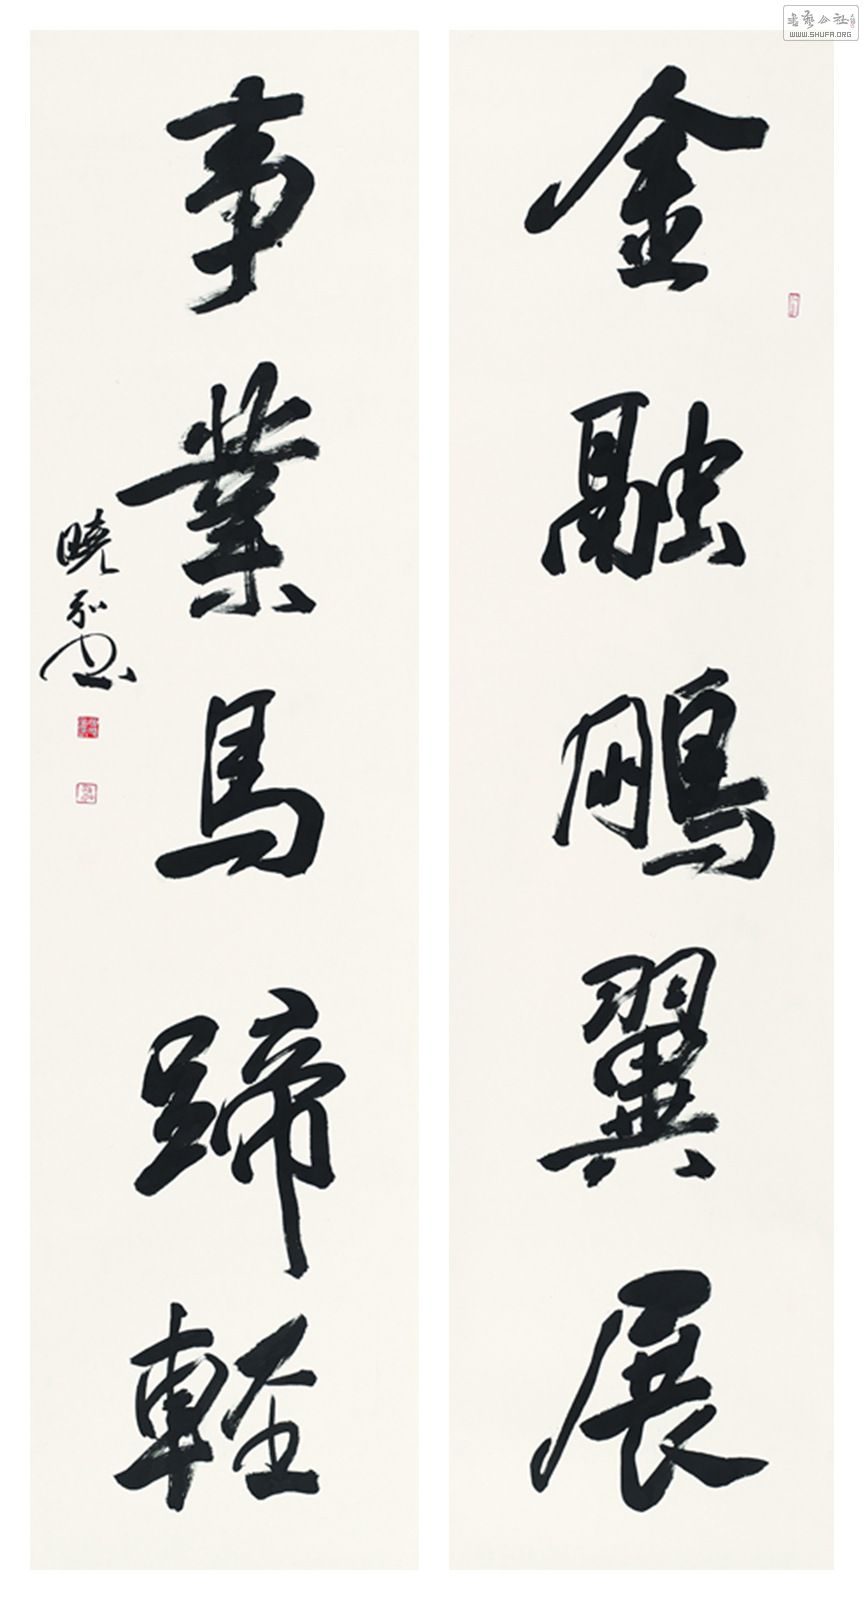 金融鵬翼展
事業馬蹄輕
曉弘書
書藝公社
WWW.SHUFA.ORG